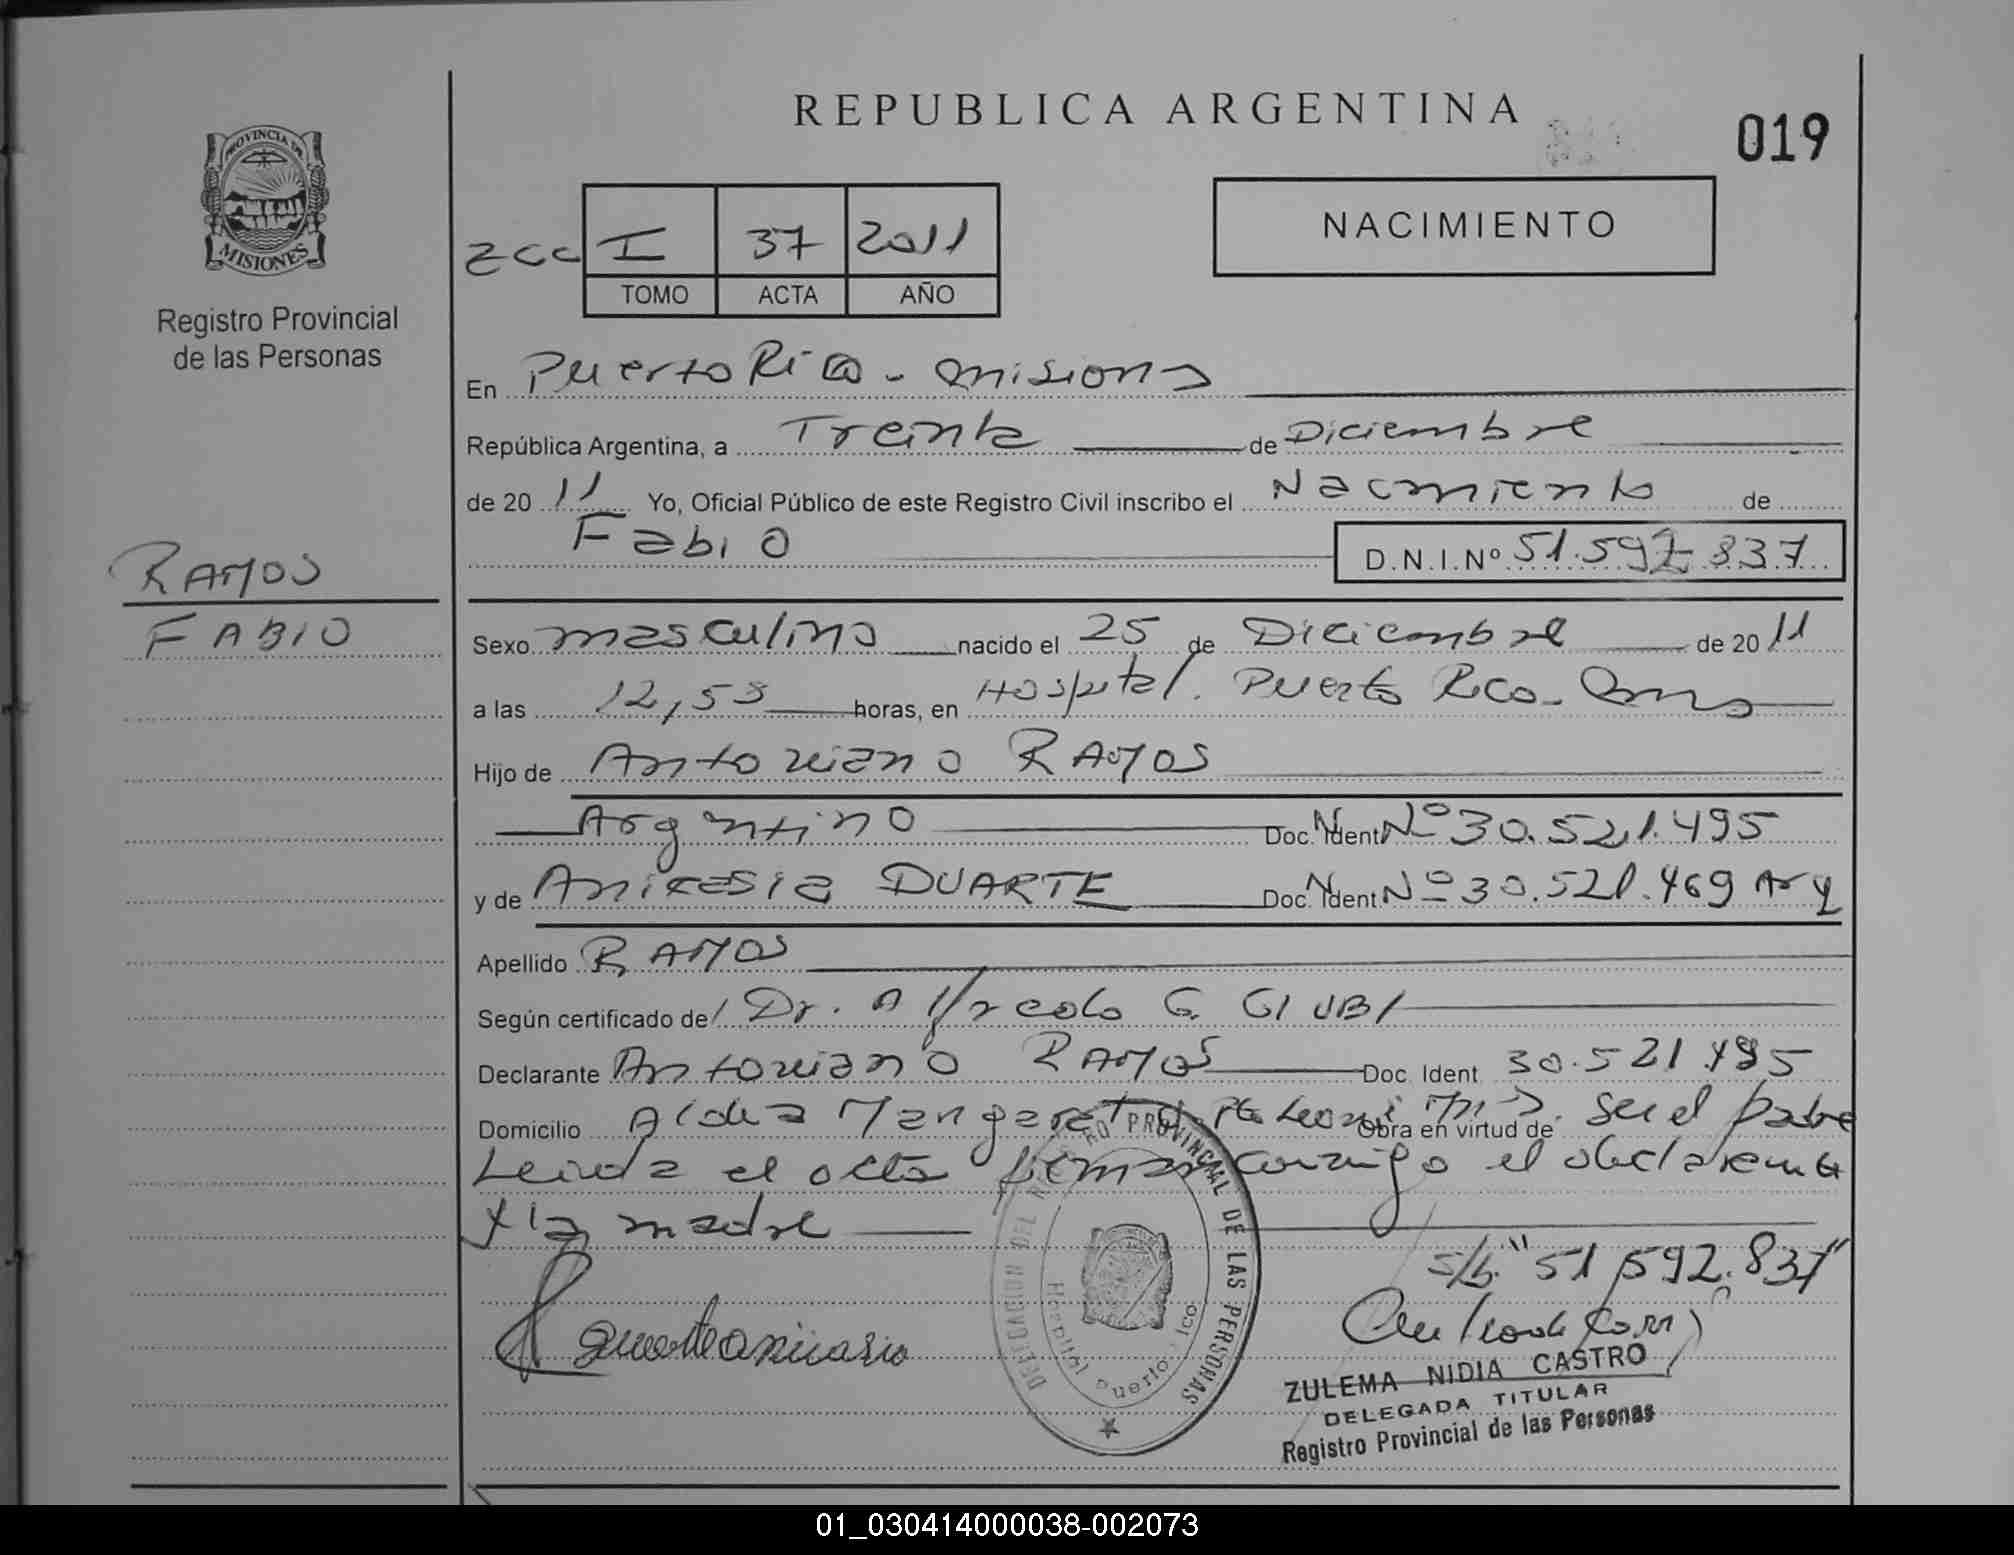 REPUBLICA ARGENTINA
019
PROVINCIA DE
MISIONES
Registro Provincial
de las Personas
NACIMIENTO
zcc I 37 2011
TOMO ACTA AÑO
En Puerto Rico - Misiones
República Argentina, a Treinta de Diciembre
de 20 11 Yo, Oficial Público de este Registro Civil inscribo el Nacimiento de
Fabio D.N.I.Nº 51.592.837
RAMOS
FABIO
Sexo masculino nacido el 25 de Diciembre de 20 11
a las 12,53 horas, en Hospital. Puerto Rico - Mnes
Hijo de Antoniano RAMOS
Argentino Doc. Ident Nº 30.521.495
y de Anicesia DUARTE Doc. Ident Nº 30.521.469 Arg
Apellido RAMOS
Según certificado de/ Dr. Alfredo G. GIUBI
Declarante Antoniano RAMOS Doc. Ident 30.521.495
Domicilio Aldea Obra en virtud de Ser el padre
Leida el acta firman conmigo el declarante
y la madre
s/b. "51.592.837"
duarte anicasia
REGISTRO PROVINCIAL DE LAS PERSONAS
Hospital Puerto Rico
ZULEMA NIDIA CASTRO
DELEGADA TITULAR
Registro Provincial de las Personas
01_030414000038-002073